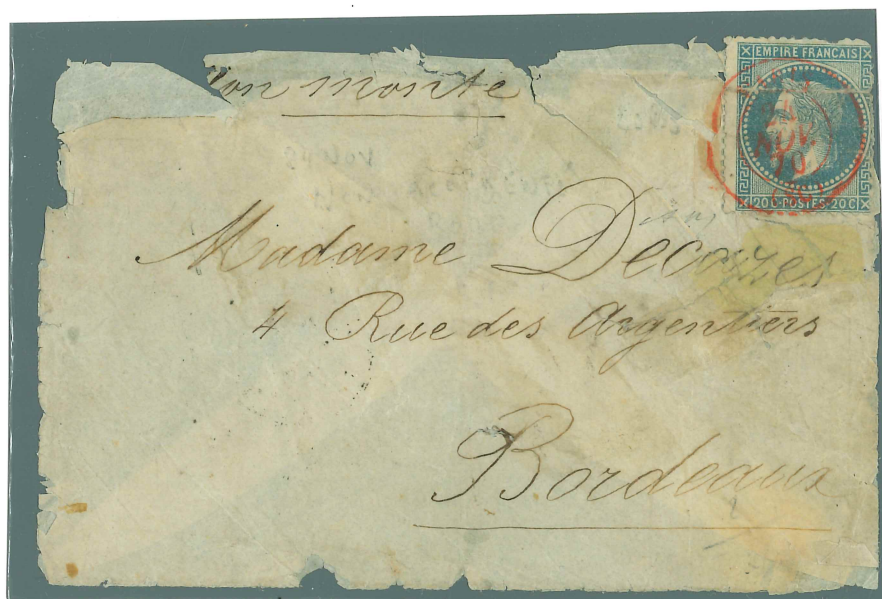 on monté
EMPIRE FRANCAIS
NOV.
70
20 C·POSTES·20 C
Madame Decazes
4 Rue des Argentiers
Bordeaux